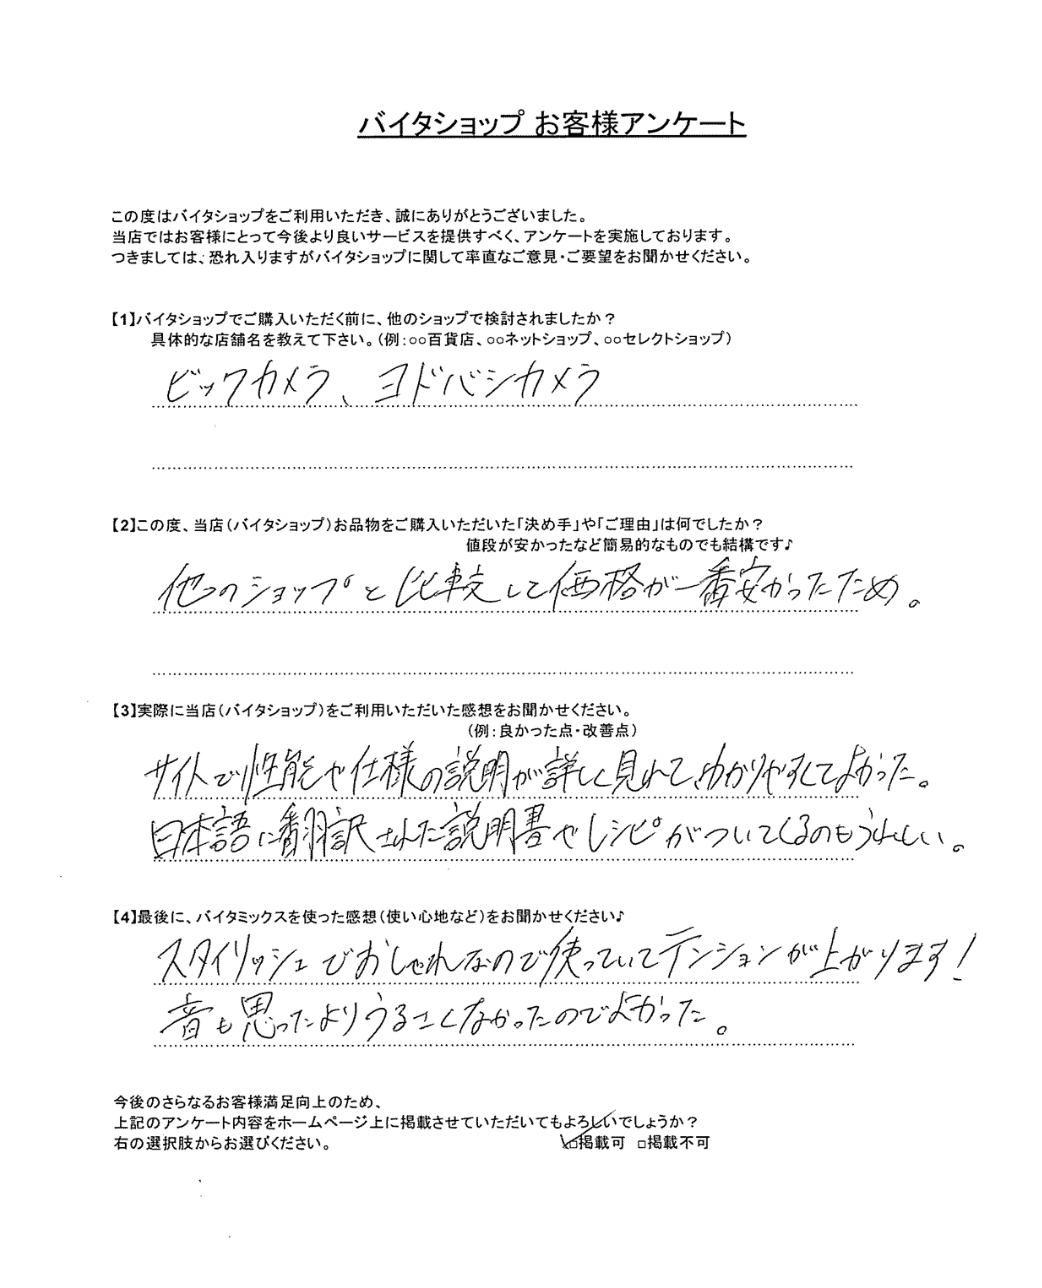 バイタショップ お客様アンケート
この度はバイタショップをご利用いただき、誠にありがとうございました。
当店ではお客様にとって今後より良いサービスを提供すべく、アンケートを実施しております。
つきましては、恐れ入りますがバイタショップに関して率直なご意見・ご要望をお聞かせください。
【1】バイタショップでご購入いただく前に、他のショップで検討されましたか？
具体的な店舗名を教えて下さい。（例：○○百貨店、○○ネットショップ、○○セレクトショップ）
ビックカメラ、ヨドバシカメラ
【2】この度、当店（バイタショップ）お品物をご購入いただいた「決め手」や「ご理由」は何でしたか？
値段が安かったなど簡易的なものでも結構です♪
他のショップと比較して価格が一番安かったため。
【3】実際に当店（バイタショップ）をご利用いただいた感想をお聞かせください。
（例：良かった点・改善点）
サイトで性能や仕様の説明が詳しく見れて、わかりやすくてよかった。
日本語に翻訳された説明書やレシピがついてくるのもうれしい。
【4】最後に、バイタミックスを使った感想（使い心地など）をお聞かせください♪
スタイリッシュでおしゃれなので使っていてテンションが上がります！
音も思ったよりうるさくなかったのでよかった。
今後のさらなるお客様満足向上のため、
上記のアンケート内容をホームページ上に掲載させていただいてもよろしいでしょうか？
右の選択肢からお選びください。 ☑掲載可 □掲載不可